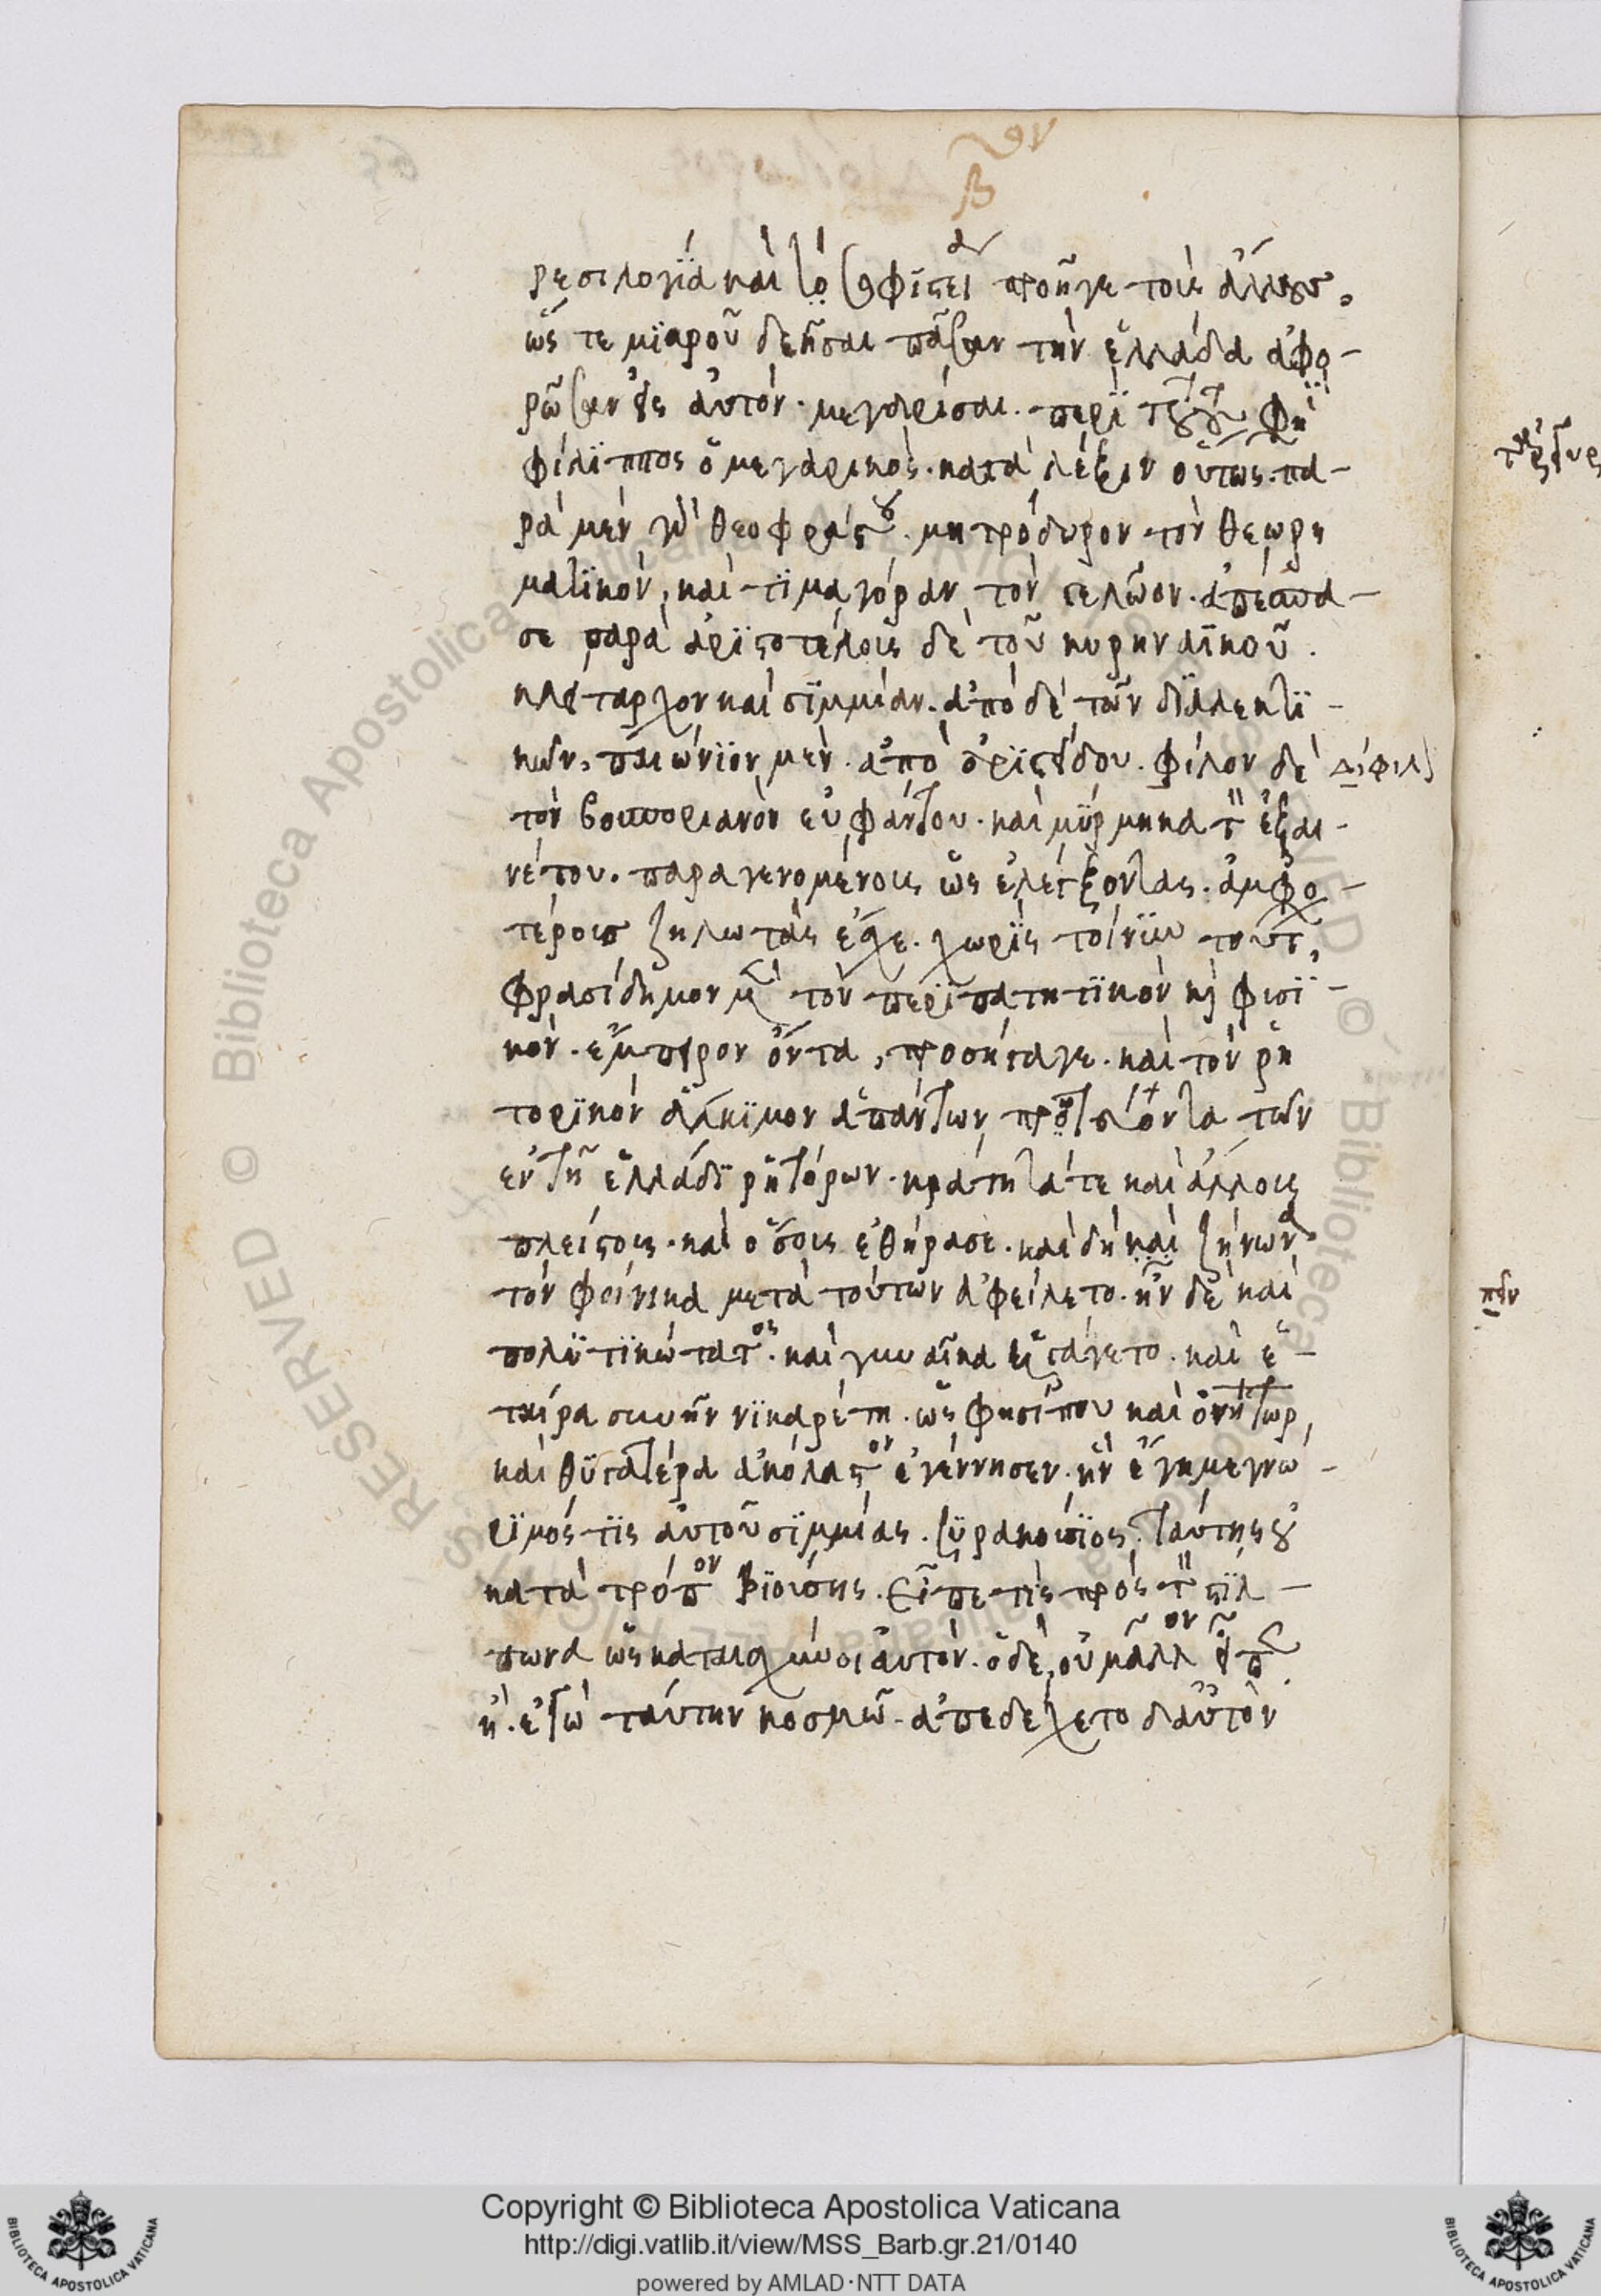 β
ρεσιλογΐα καὶ τὸ σοφίστει προῆγε τοὺς ἄλλους,
ὥς τε μϊκροῦ δεῆσαι πᾶσαν τὴν ἑλλάδα ἀφο-
ρῶσαν εἰς αὐτὸν. μεγαρίσαι. περὶ τούτου φη
φίλϊππος ὁ μεγαρικὸς. κατὰ λέξιν οὕτως. πα-
ρὰ μὲν γὰρ θεοφράστου. μητρόδωρον τὸν θεωρη
ματϊκὸν, καὶ τϊμαγόραν τὸν γελῶον. ἀπέσπα-
σε παρὰ ἀρϊστοτέλους δὲ τοῦ κυρηναϊκοῦ.
κλείταρχον καὶ σϊμμίαν. ἀπὸ δὲ τῶν δϊαλεκτϊ-
κῶν, παιώνϊον μὲν. ἀπὸ ἀρϊστείδου. φίλον δὲ
Δίφιλ
τὸν βοσποριανὸν εὐφάντου. καὶ μϋρμηκα τ ἐξαι-
νέτου. παραγενομένους ὡς ἐλέγξοντας. ἀμφο-
τέρους ζηλωτὰς ἔσχε. χωρϊς τοίνϋν τούτ,
φρασίδημον μὲν τὸν περϊπατητϊκὸν κὶ φισϊ-
κὸν. ἔμπειρον ὄντα, προσήγαγε. καὶ τὸν ῥη
τορϊκὸν ἄλκϊμον ἁπάντων πρωτεύοντα τῶν
ἐν τῆ ἑλλάδϊ ῥητόρων. κράτητά τε καὶ ἄλλους
πλείστους. καὶ ὅσους ἐθήρασε. καὶ δὴ καὶ ζήνωνα
τὸν φοίνικα μετὰ τούτων ἀφείλετο. ἦν δὲ καὶ
πολϋτικώτατος. καὶ γυναῖκα εἰσάγετο. καὶ ἑ-
ταίρα συνῆν νϊκαρέτη. ὥς φησί που καὶ ὀνήτωρ,
καὶ θϋγατέρα ἀκόλαστον ἐγέννησεν. ἣν ἔγημε γνώ-
ρϊμός τϊς αὐτοῦ σϊμμίας. σϋρακούσϊος. ταύτης οὐ
κατὰ τρόπον βϊούσης. εἶπέ τις πρὸς τ στϊλ-
πωνα ὡς καταισχύνοι αὐτὸν. ὁ δὲ, οὐ μᾶλλον εἶπεν
ἢ. ἐγὼ ταύτην κοσμῶ. ἀπεδέχετο δ αὐτὸν
Copyright © Biblioteca Apostolica Vaticana
http://digi.vatlib.it/view/MSS_Barb.gr.21/0140
powered by AMLAD·NTT DATA